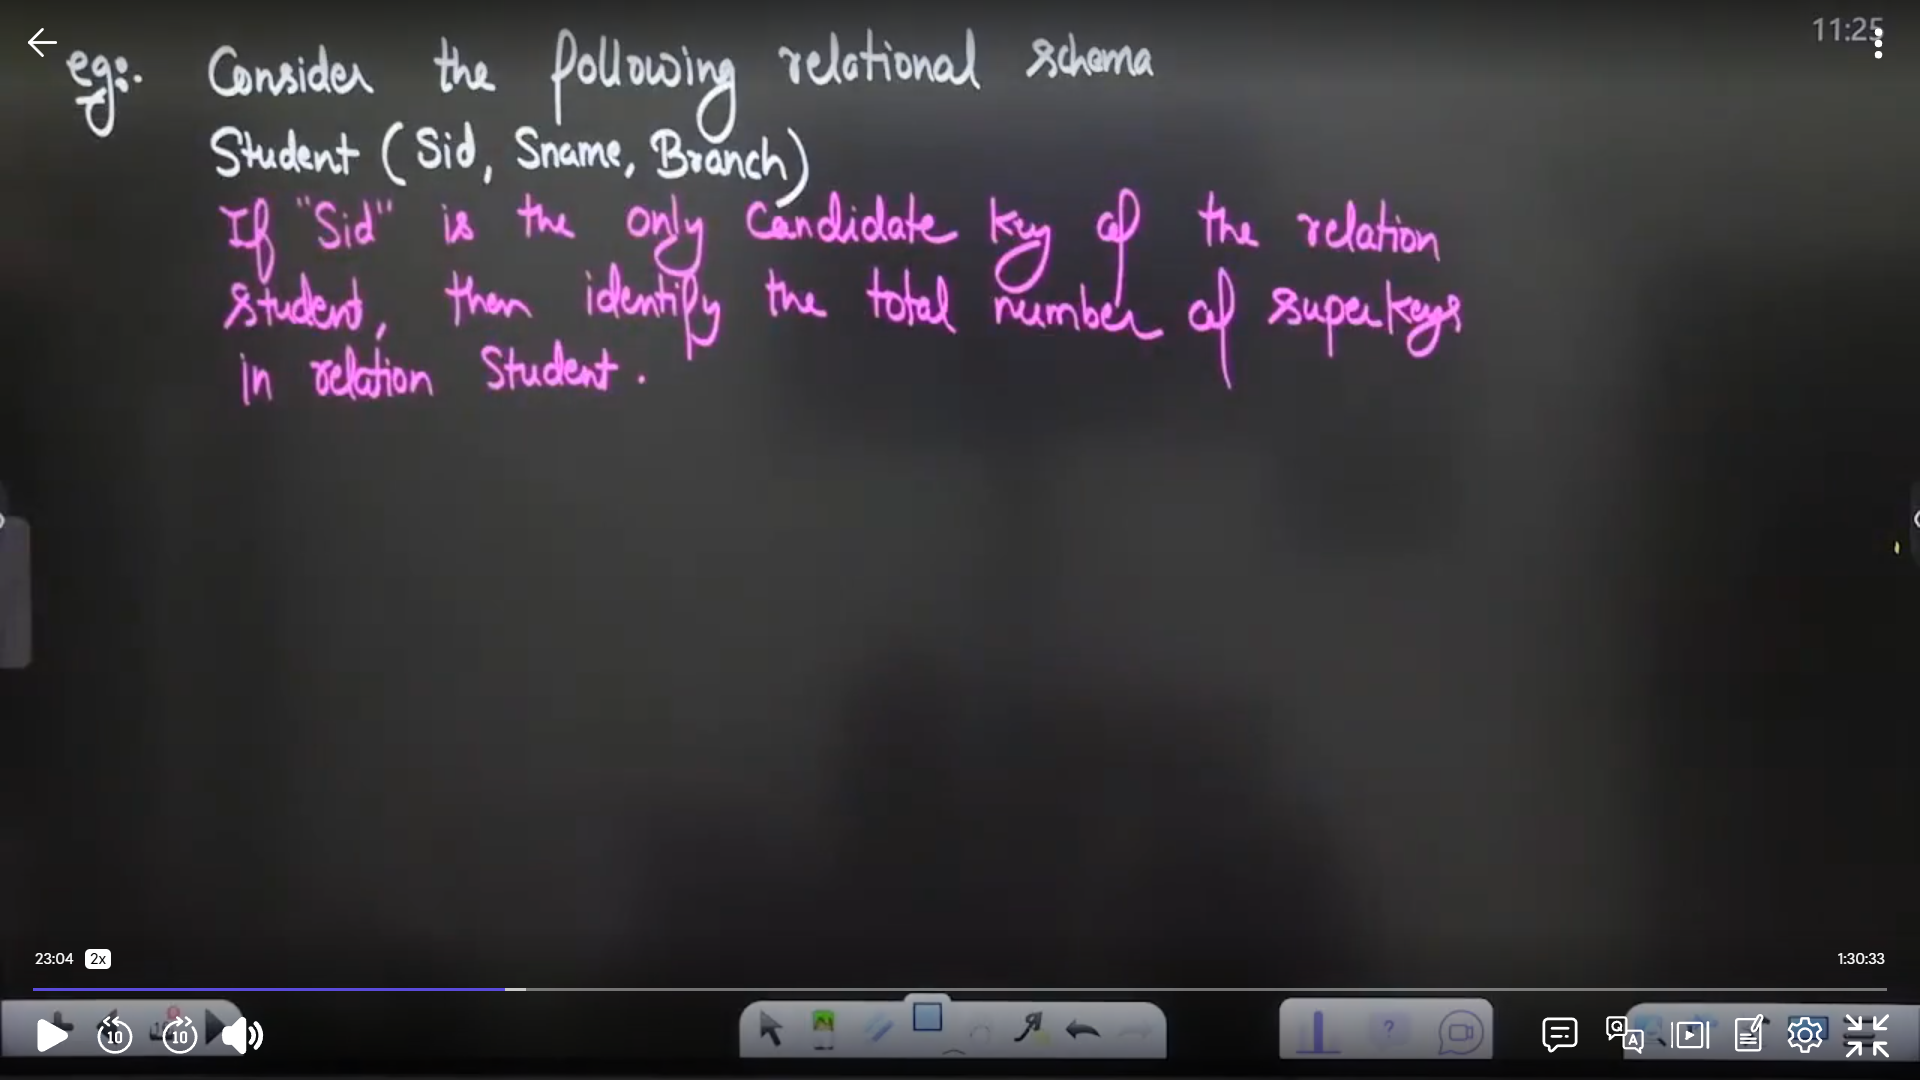 11:25
eg:. Consider the following relational schema
Student (Sid, Sname, Branch)
If "Sid" is the only Candidate key of the relation
student, then identify the total number of superkeys
in relation Student.
23:04 2x 1:30:33
10 10